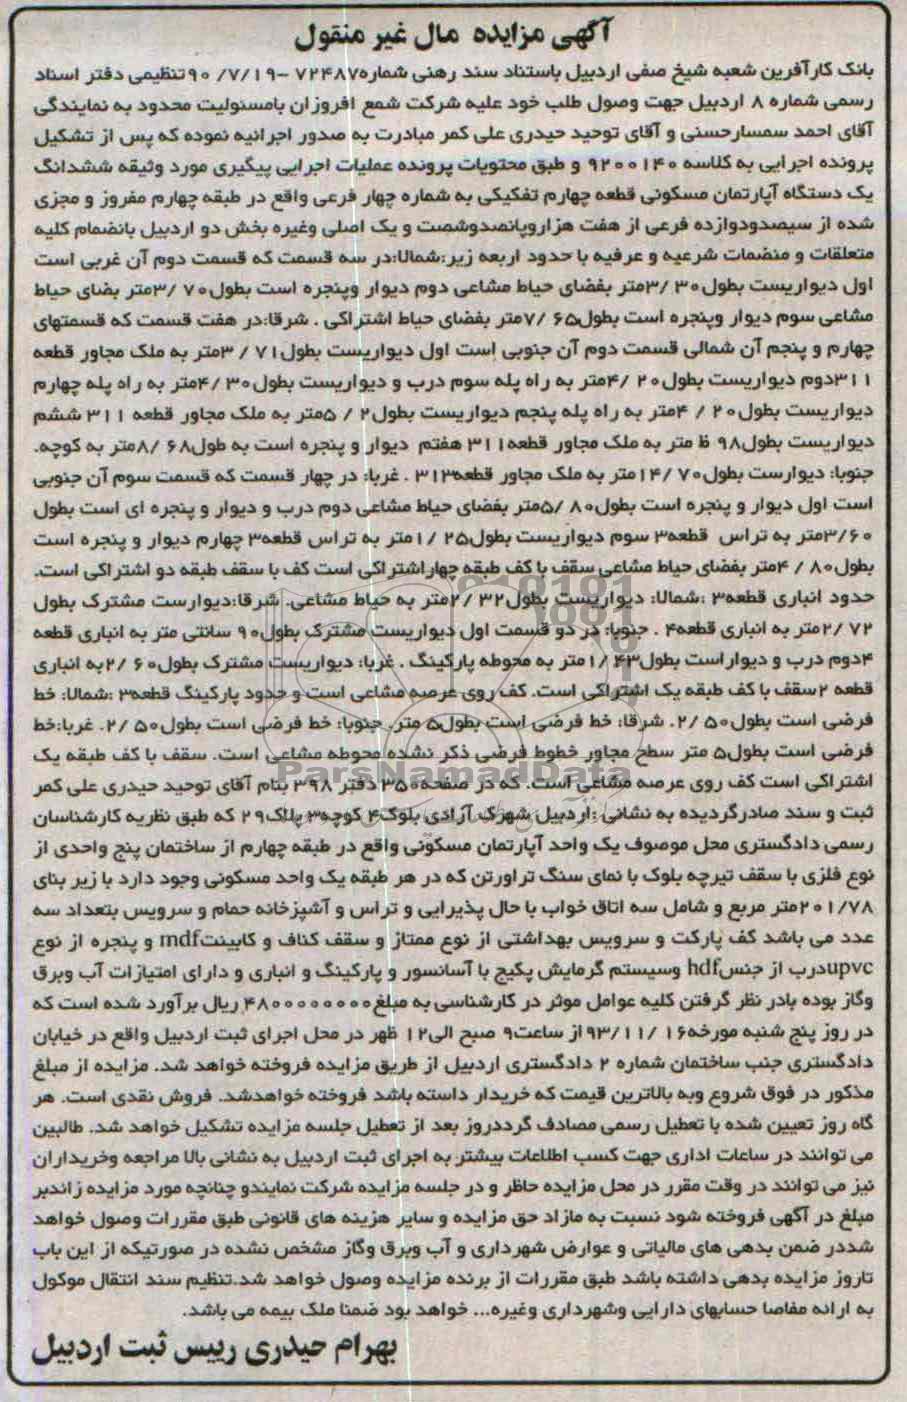 آگهی مزایده مال غیر منقول
بانک کارآفرین شعبه شیخ صفی اردبیل باستناد سند رهنی شماره۷۲۴۸۷ -۹۰/۷/۱۹تنظیمی دفتر اسناد
رسمی شماره ۸ اردبیل جهت وصول طلب خود علیه شرکت شمع افروزان بامسئولیت محدود به نمایندگی
آقای احمد سمسارحسنی و آقای توحید حیدری علی کمر مبادرت به صدور اجرائیه نموده که پس از تشکیل
پرونده اجرایی به کلاسه ۹۲۰۰۱۴۰ و طبق محتویات پرونده عملیات اجرایی پیگیری مورد وثیقه ششدانگ
یک دستگاه آپارتمان مسکونی قطعه چهارم تفکیکی به شماره چهار فرعی واقع در طبقه چهارم مفروز و مجزی
شده از سیصدودوازده فرعی از هفت هزاروپانصدوشصت و یک اصلی وغیره بخش دو اردبیل بانضمام کلیه
متعلقات و منضمات شرعیه و عرفیه با حدود اربعه زیر:شمالا:در سه قسمت که قسمت دوم آن غربی است
اول دیواریست بطول۳/۳۰متر بفضای حیاط مشاعی دوم دیوار وپنجره است بطول۳/۷۰متر بضای حیاط
مشاعی سوم دیوار وپنجره است بطول۷/۶۵متر بفضای حیاط اشتراکی . شرقا:در هفت قسمت که قسمتهای
چهارم و پنجم آن شمالی قسمت دوم آن جنوبی است اول دیواریست بطول۳/۷۱متر به ملک مجاور قطعه
۳۱۱دوم دیواریست بطول۴/۲۰متر به راه پله سوم درب و دیواریست بطول۴/۳۰متر به راه پله چهارم
دیواریست بطول۴/۲۰متر به راه پله پنجم دیواریست بطول۵/۲متر به ملک مجاور قطعه ۳۱۱ ششم
دیواریست بطول۹۸ ظ متر به ملک مجاور قطعه۳۱۱ هفتم دیوار و پنجره است به طول۸/۶۸متر به کوچه.
جنوبا: دیوارست بطول۱۴/۷۰متر به ملک مجاور قطعه۳۱۳ . غربا: در چهار قسمت که قسمت سوم آن جنوبی
است اول دیوار و پنجره است بطول۵/۸۰متر بفضای حیاط مشاعی دوم درب و دیوار و پنجره ای است بطول
۳/۶۰متر به تراس قطعه۳ سوم دیواریست بطول۱/۲۵متر به تراس قطعه۳ چهارم دیوار و پنجره است
بطول۴/۸۰متر بفضای حیاط مشاعی سقف با کف طبقه چهاراشتراکی است کف با سقف طبقه دو اشتراکی است.
حدود انباری قطعه۳ :شمالا: دیواریست بطول۲/۳۲متر به حیاط مشاعی. شرقا:دیوارست مشترک بطول
۲/۷۲متر به انباری قطعه۴ . جنوبا: در دو قسمت اول دیواریست مشترک بطول۹۰ سانتی متر به انباری قطعه
۴دوم درب و دیواراست بطول۱/۴۳متر به محوطه پارکینگ . غربا: دیواریست مشترک بطول۲/۶۰به انباری
قطعه ۲سقف با کف طبقه یک اشتراکی است. کف روی عرصه مشاعی است و حدود پارکینگ قطعه۳ :شمالا: خط
فرضی است بطول۲/۵۰. شرقا: خط فرضی است بطول۵ متر. جنوبا: خط فرضی است بطول۲/۵۰. غربا:خط
فرضی است بطول۵ متر سطح مجاور خطوط فرضی ذکر نشده محوطه مشاعی است. سقف با کف طبقه یک
اشتراکی است کف روی عرصه مشاعی است. که در صفحه۳۵۰ دفتر ۳۹۸ بنام آقای توحید حیدری علی کمر
ثبت و سند صادرگردیده به نشانی :اردبیل شهرک آزادی بلوک۴ کوچه۳ پلاک۲۹ که طبق نظریه کارشناسان
رسمی دادگستری محل موصوف یک واحد آپارتمان مسکونی واقع در طبقه چهارم از ساختمان پنج واحدی از
نوع فلزی با سقف تیرچه بلوک با نمای سنگ تراورتن که در هر طبقه یک واحد مسکونی وجود دارد با زیر بنای
۲۰۱/۷۸متر مربع و شامل سه اتاق خواب با حال پذیرایی و تراس و آشپزخانه حمام و سرویس بتعداد سه
عدد می باشد کف پارکت و سرویس بهداشتی از نوع ممتاز و سقف کناف و کابینتmdf و پنجره از نوع
upvcدرب از جنسhdf وسیستم گرمایش پکیج با آسانسور و پارکینگ و انباری و دارای امتیازات آب وبرق
وگاز بوده بادر نظر گرفتن کلیه عوامل موثر در کارشناسی به مبلغ۴۸۰۰۰۰۰۰۰۰ ریال برآورد شده است که
در روز پنج شنبه مورخه۹۳/۱۱/۱۶از ساعت۹ صبح الی۱۲ ظهر در محل اجرای ثبت اردبیل واقع در خیابان
دادگستری جنب ساختمان شماره ۲ دادگستری اردبیل از طریق مزایده فروخته خواهد شد. مزایده از مبلغ
مذکور در فوق شروع وبه بالاترین قیمت که خریدار داسته باشد فروخته خواهدشد. فروش نقدی است. هر
گاه روز تعیین شده با تعطیل رسمی مصادف گرددروز بعد از تعطیل جلسه مزایده تشکیل خواهد شد. طالبین
می توانند در ساعات اداری جهت کسب اطلاعات بیشتر به اجرای ثبت اردبیل به نشانی بالا مراجعه وخریداران
نیز می توانند در وقت مقرر در محل مزایده حاظر و در جلسه مزایده شرکت نمایندو چنانچه مورد مزایده زائدبر
مبلغ در آگهی فروخته شود نسبت به مازاد حق مزایده و سایر هزینه های قانونی طبق مقررات وصول خواهد
شددر ضمن بدهی های مالیاتی و عوارض شهرداری و آب وبرق وگاز مشخص نشده در صورتیکه از این باب
تاروز مزایده بدهی داشته باشد طبق مقررات از برنده مزایده وصول خواهد شد.تنظیم سند انتقال موکول
به ارائه مفاصا حسابهای دارایی وشهرداری وغیره... خواهد بود ضمنا ملک بیمه می باشد.
بهرام حیدری رییس ثبت اردبیل
ParsNamadData